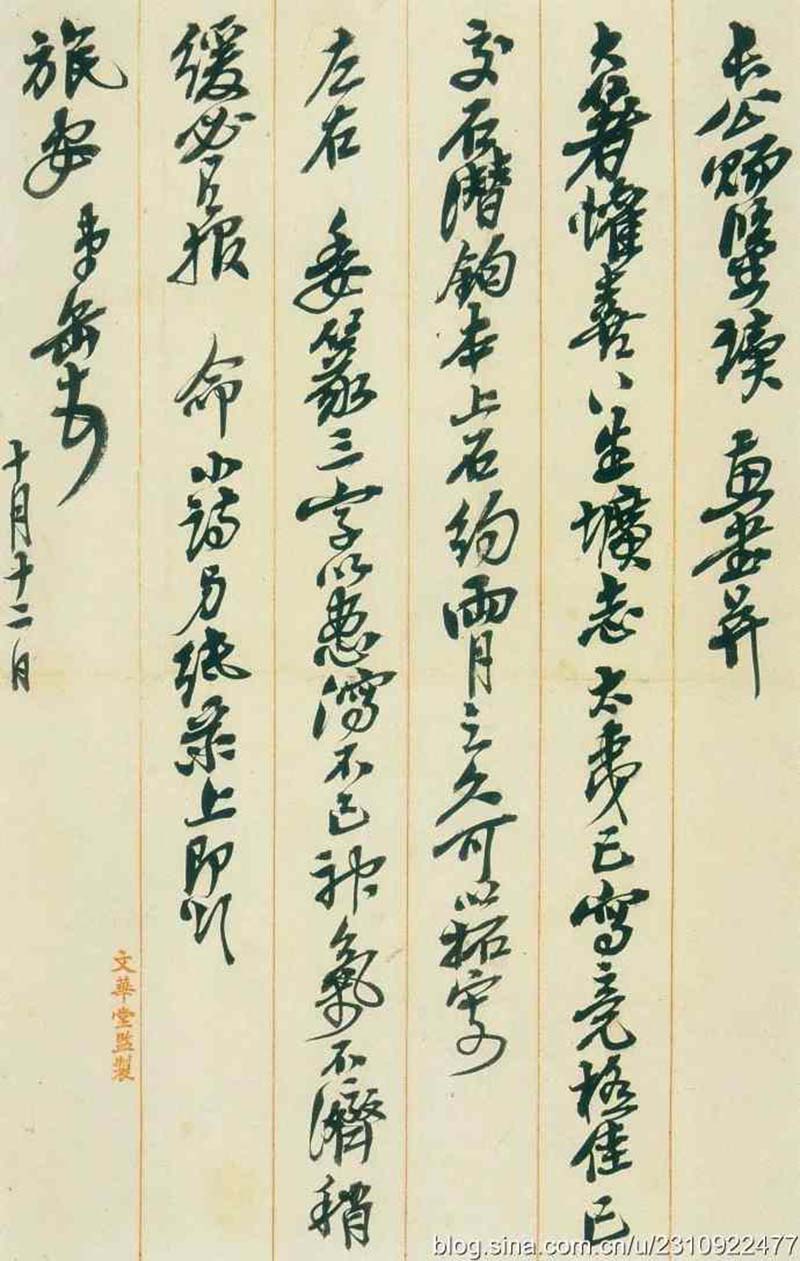 長公賜鑒讀 惠書并
大箸懽喜 生壙志太夷已寫竟極佳已
交石潛鉤本上石約兩月之久可以拓寄
左右 委篆三字以患瀉不已神氣不濟稍
緩必報 命小詩另紙录上即頌
旅安 弟缶頓首
十月十二日
文華堂監製
blog.sina.com.cn/u/2310922477